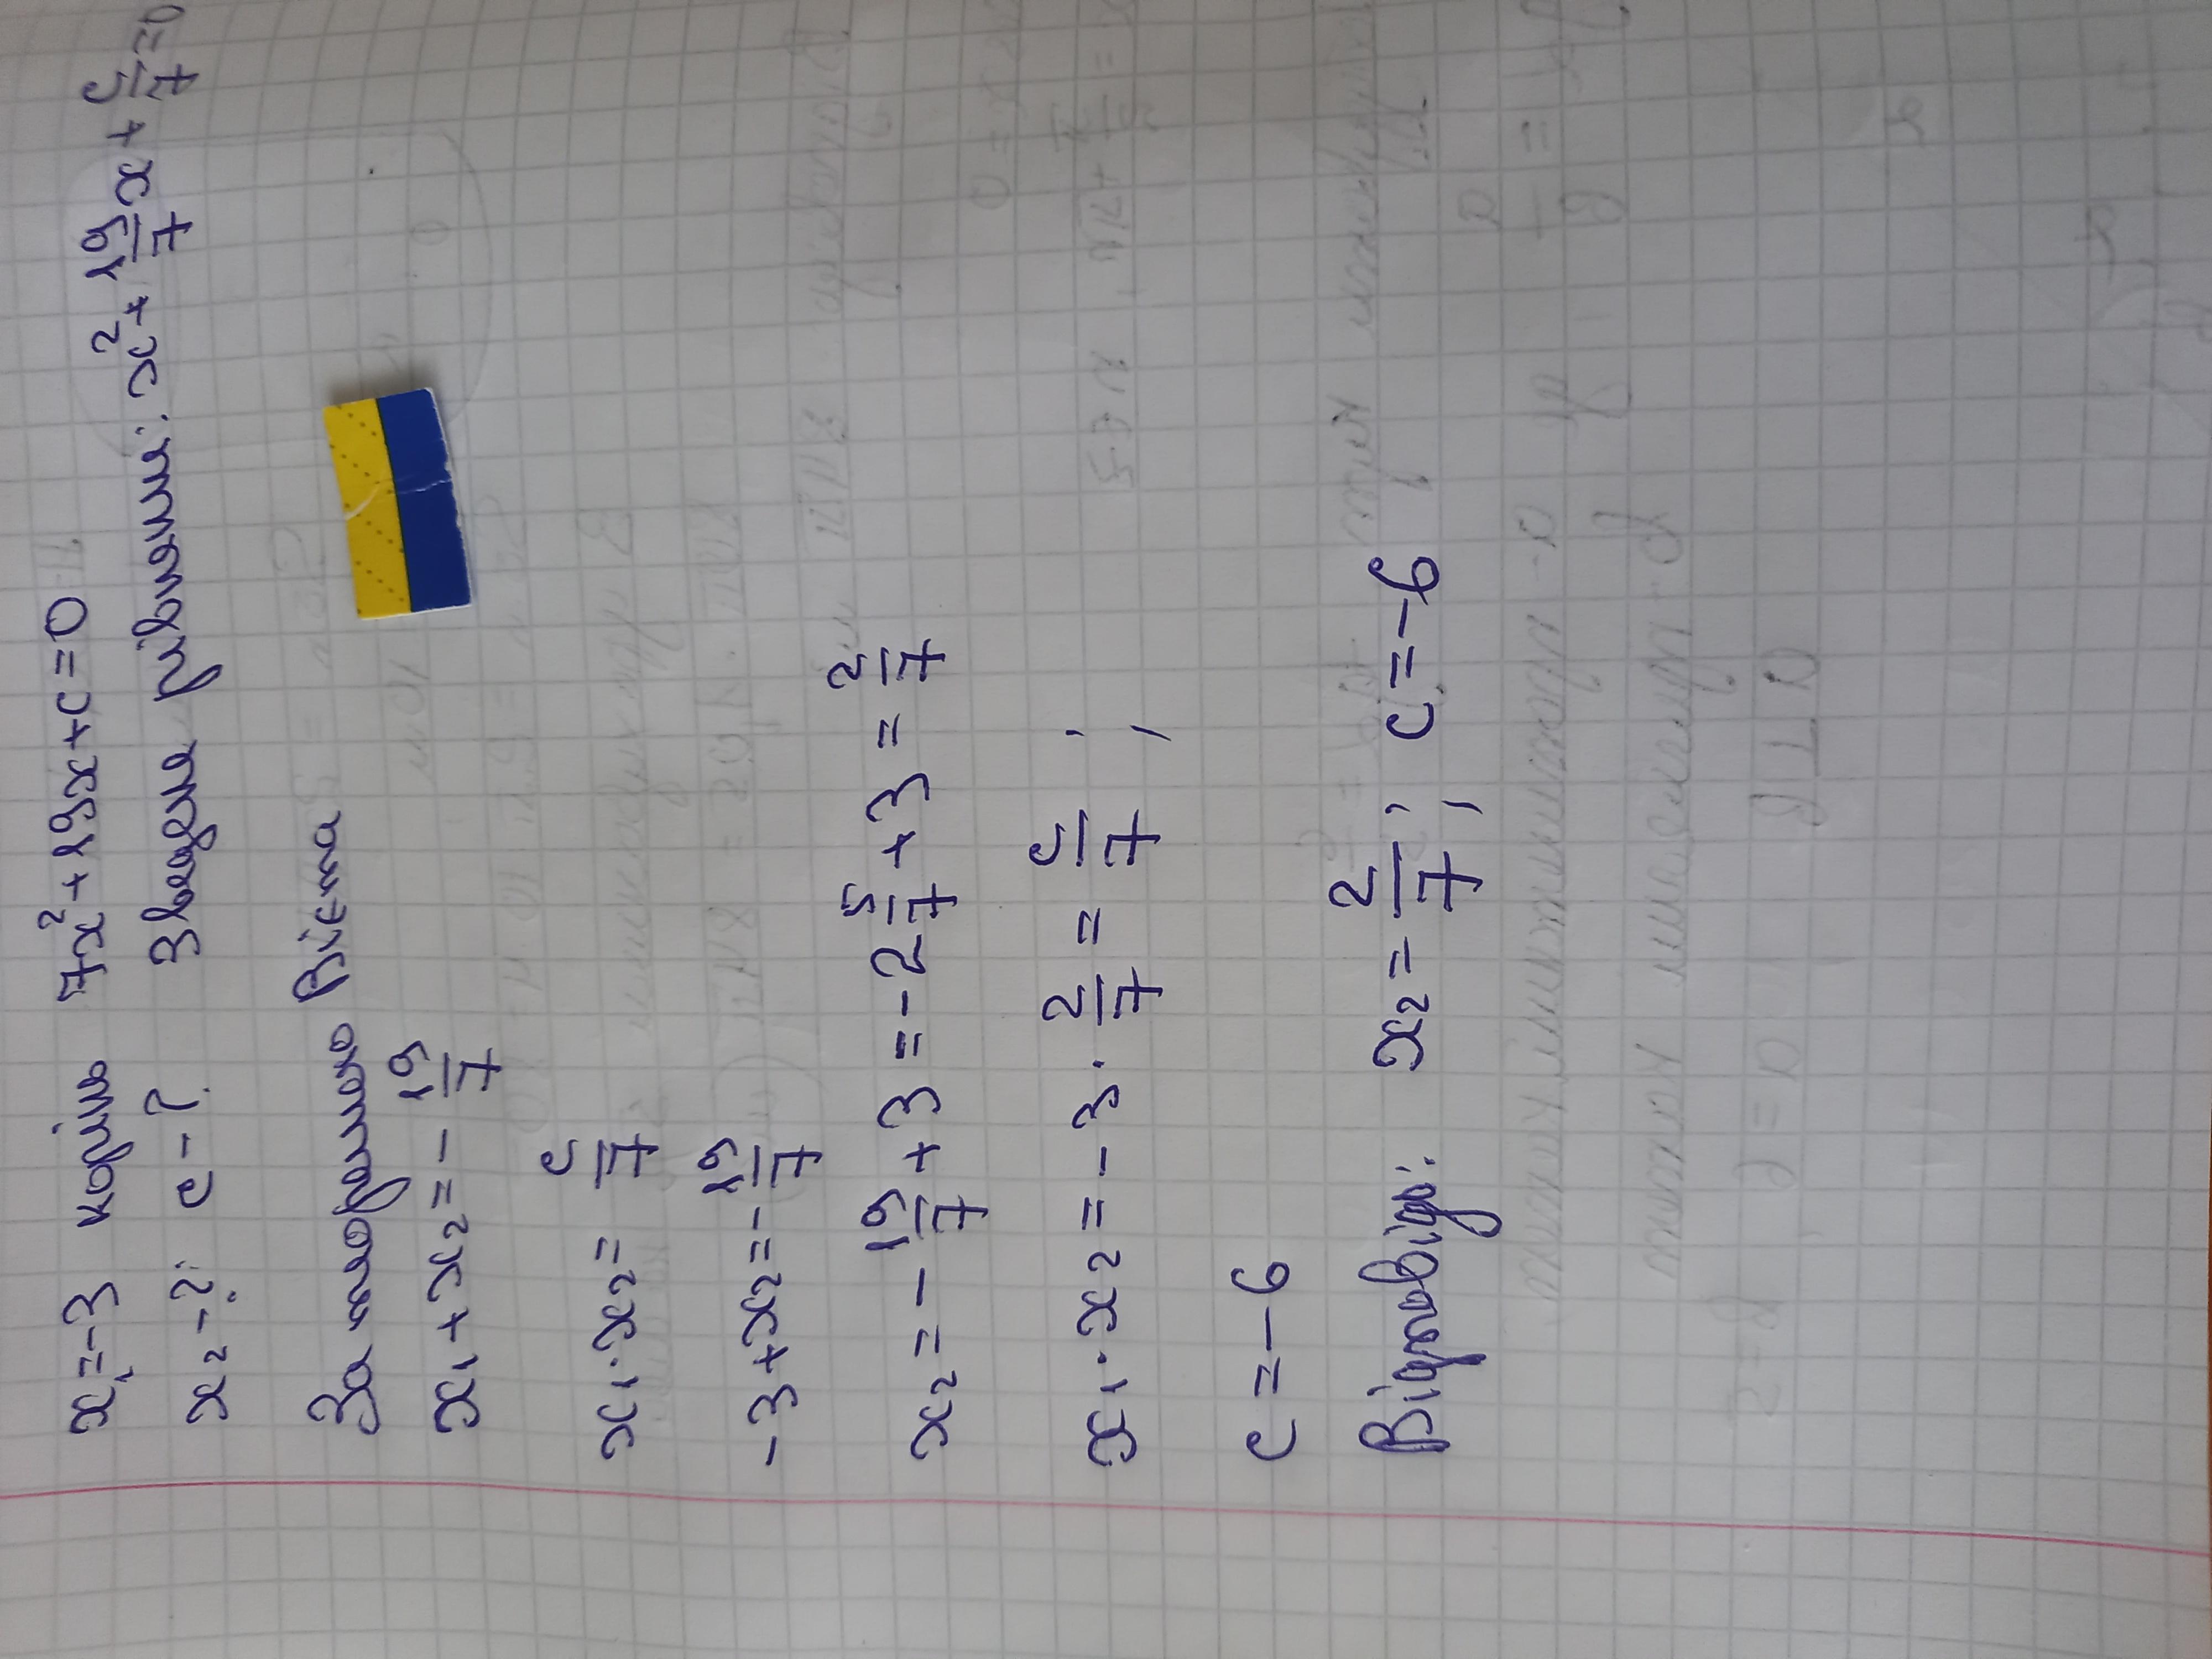 x₁=-3 корінь 7x²+19x+c=0
x₂-? c-? Зведене рівняння: x²+19/7x+c/7=0
За теоремою Вієта
x₁+x₂=-19/7
x₁·x₂=c/7
-3+x₂=-19/7
x₂=-19/7+3=-2 5/7+3=2/7
x₁·x₂=-3·2/7=c/7;
c=-6
Відповідь: x₂=2/7; c=-6